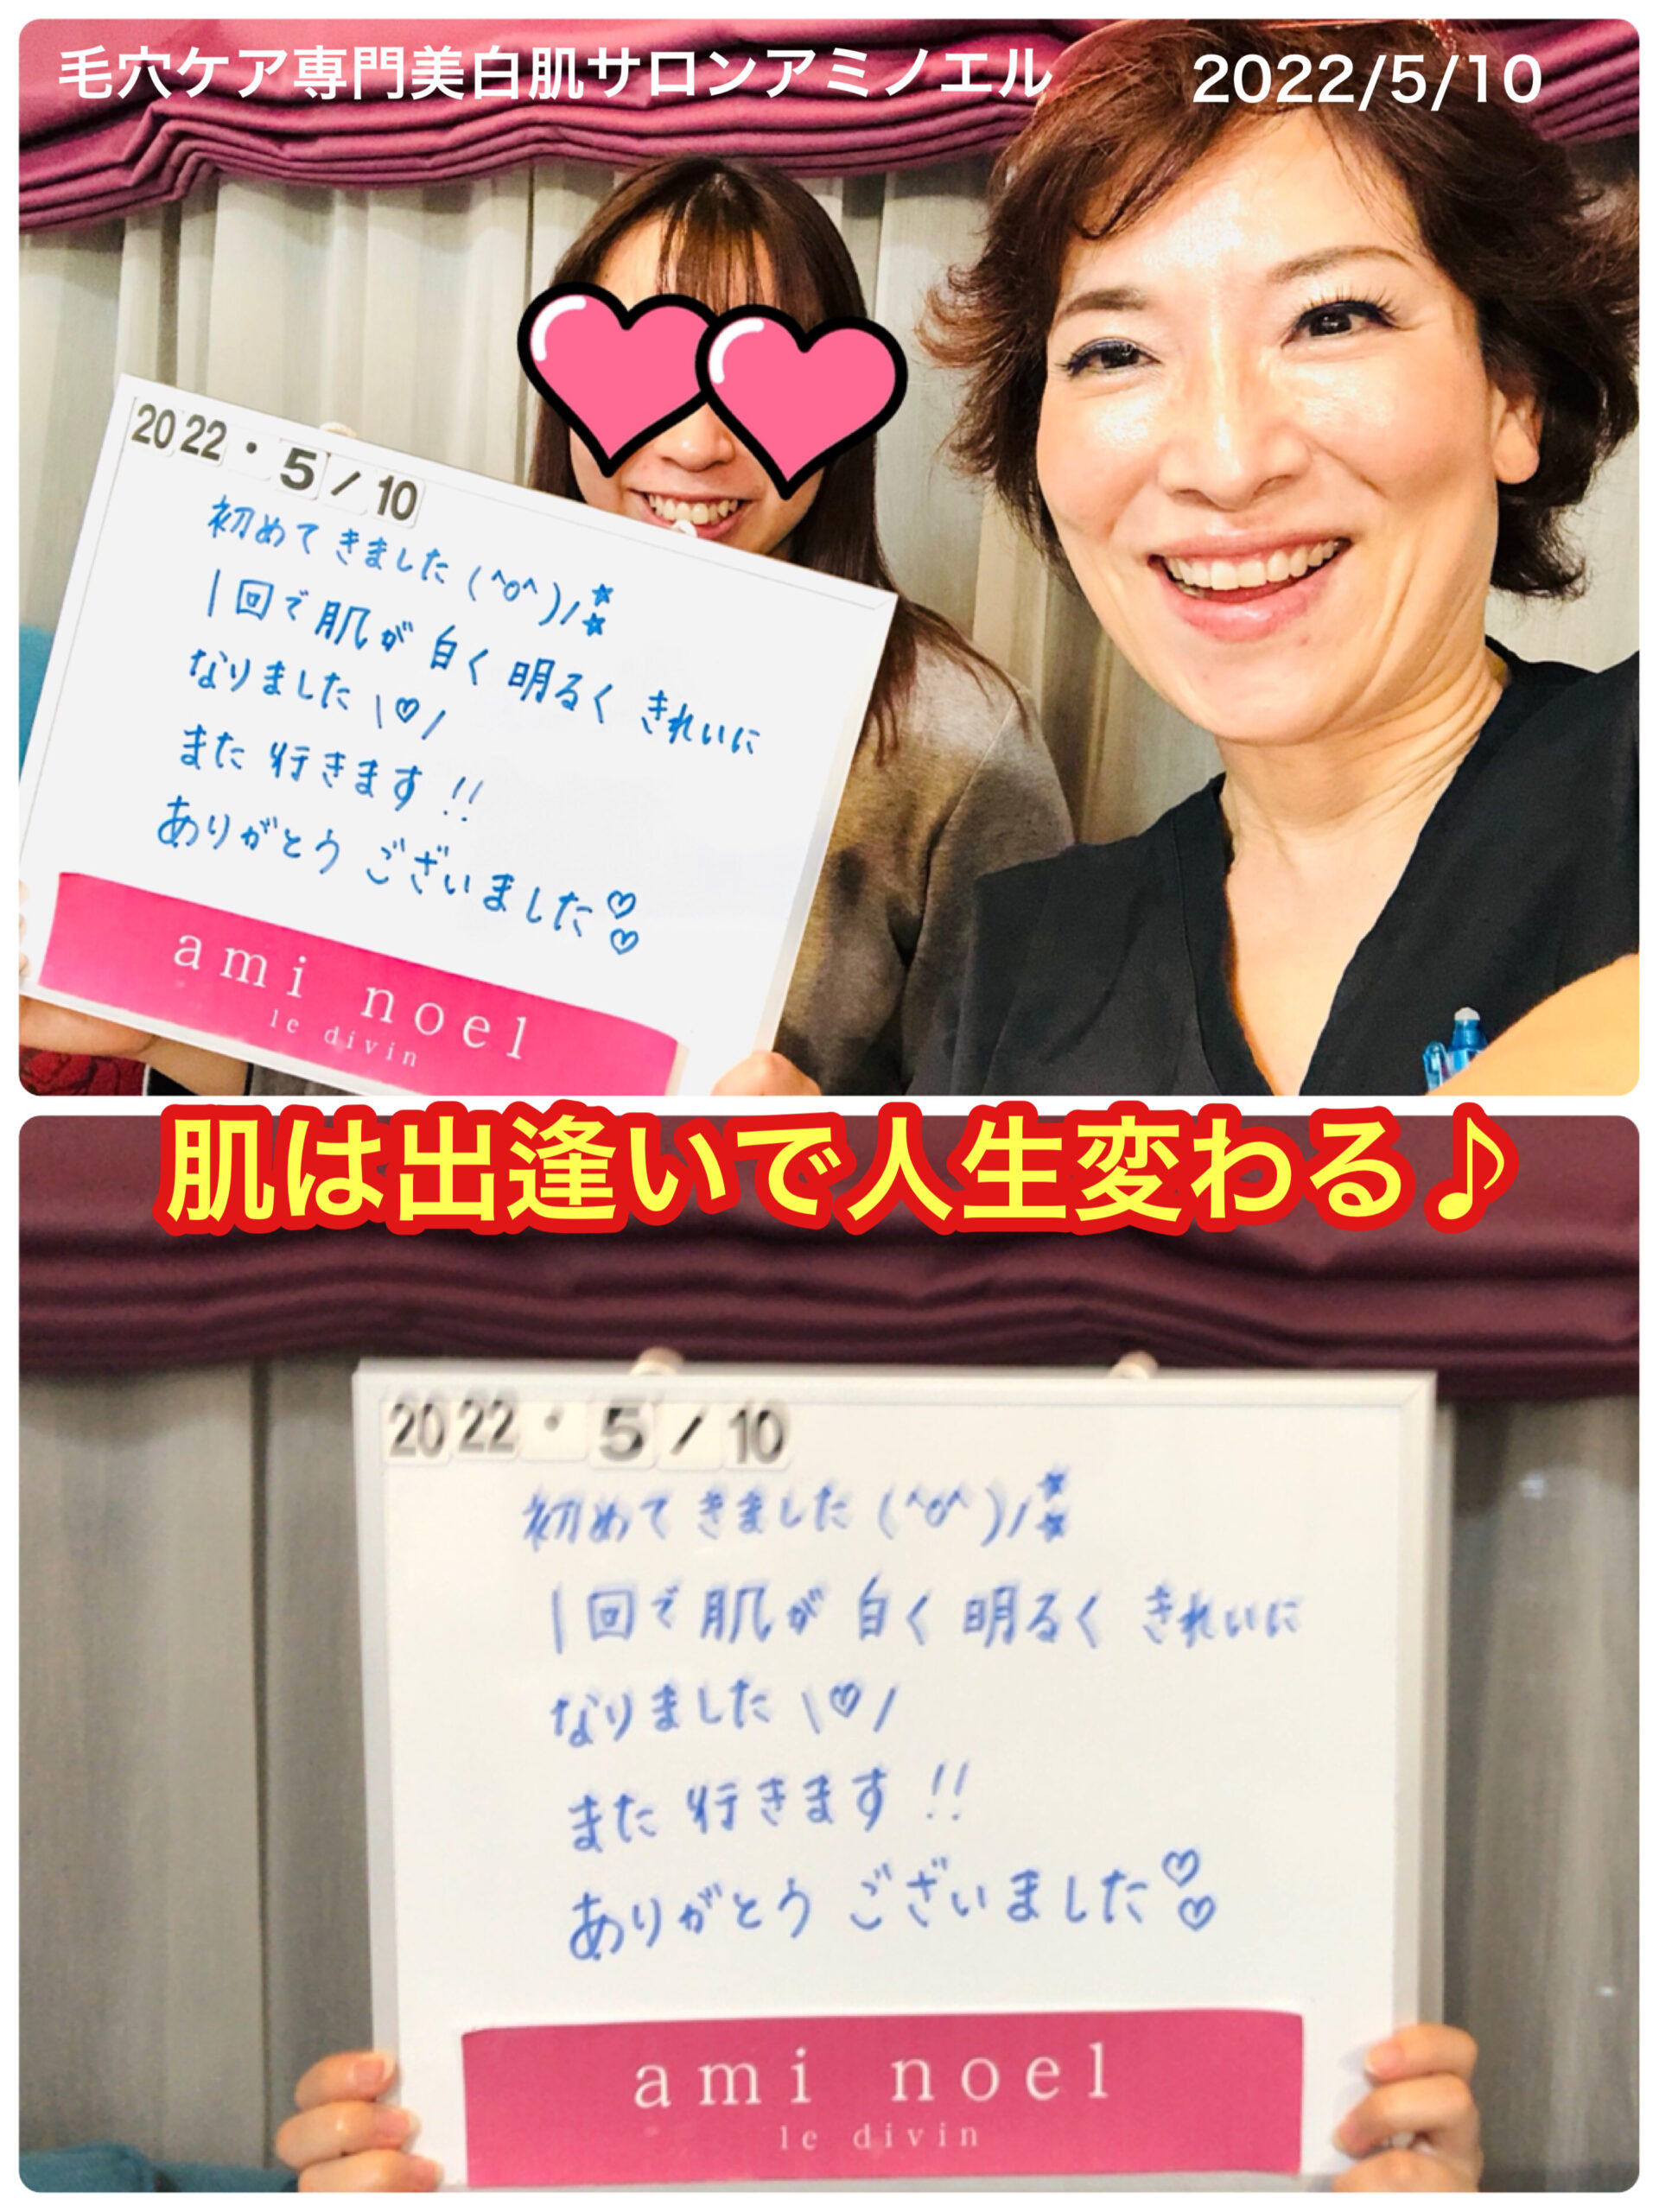 毛穴ケア専門美白肌サロンアミノエル
2022/5/10
2022・5/10
初めてきました(^o^)/
1回で肌が白く明るくきれいに
なりました \♡/
また行きます!!
ありがとうございました♡♡
ami noel
le divin
肌は出逢いで人生変わる♪
2022・5/10
初めてきました(^o^)/
1回で肌が白く明るくきれいに
なりました \♡/
また行きます!!
ありがとうございました♡♡
ami noel
le divin